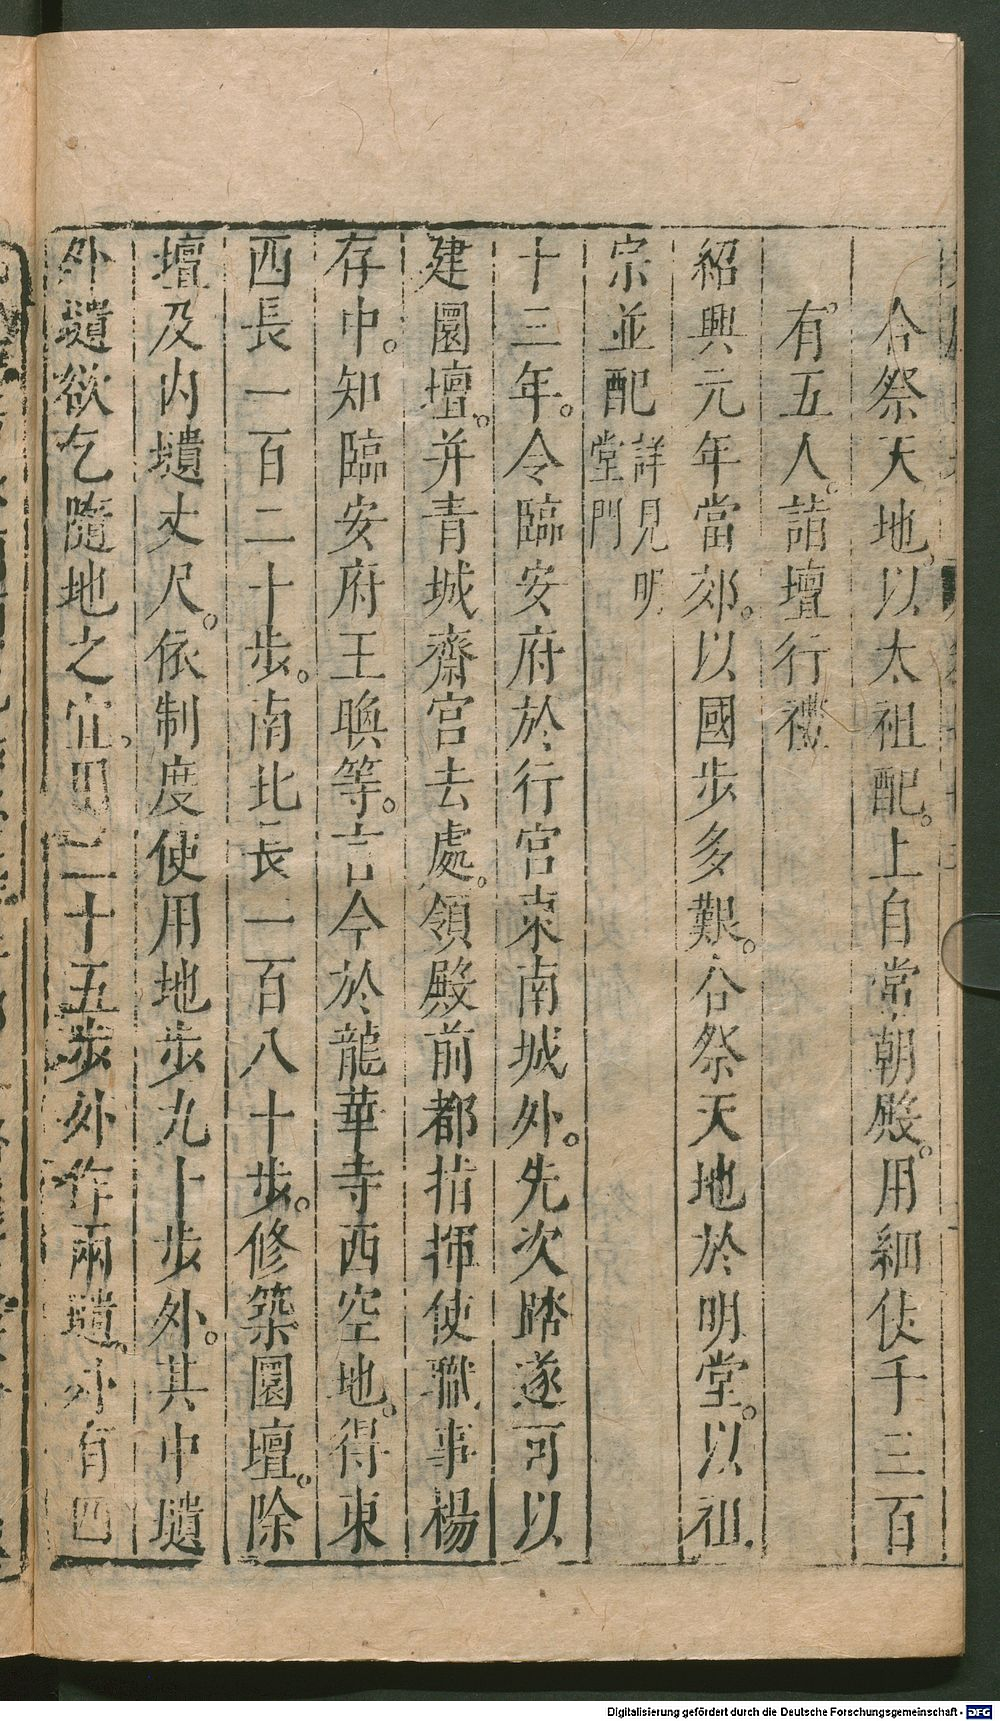 合祭天地。以太祖配。上自常朝殿。用細仗千三百
有五人。詣壇行禮
紹興元年當郊。以國步多艱。合祭天地於明堂。以祖
宗並配詳見明堂門
十三年。令臨安府於行宮東南城外。先次踏逐可以
建圜壇。并青城齋宮去處。領殿前都指揮使職事楊
存中。知臨安府王㬇等。言今於龍華寺西空地。得東
西長一百二十步。南北長一百八十步。修築圜壇。除
壇及內壝丈尺。依制度使用地步九十步外。其中壝
外壝欲乞隨地之宜。用二十五步外作兩壝。外有四
Digitalisierung gefördert durch die Deutsche Forschungsgemeinschaft - DFG